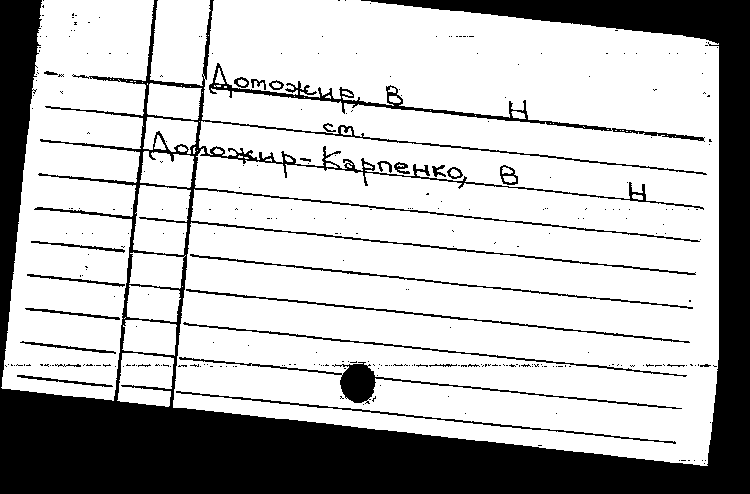 Дотожир, В Н
ст.
Дотожир-Карпенко, В Н